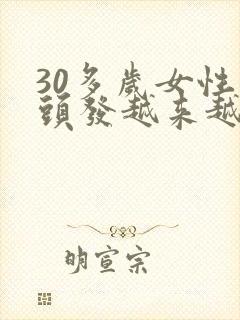 30多歲女性
頭發越来越
明宣宗